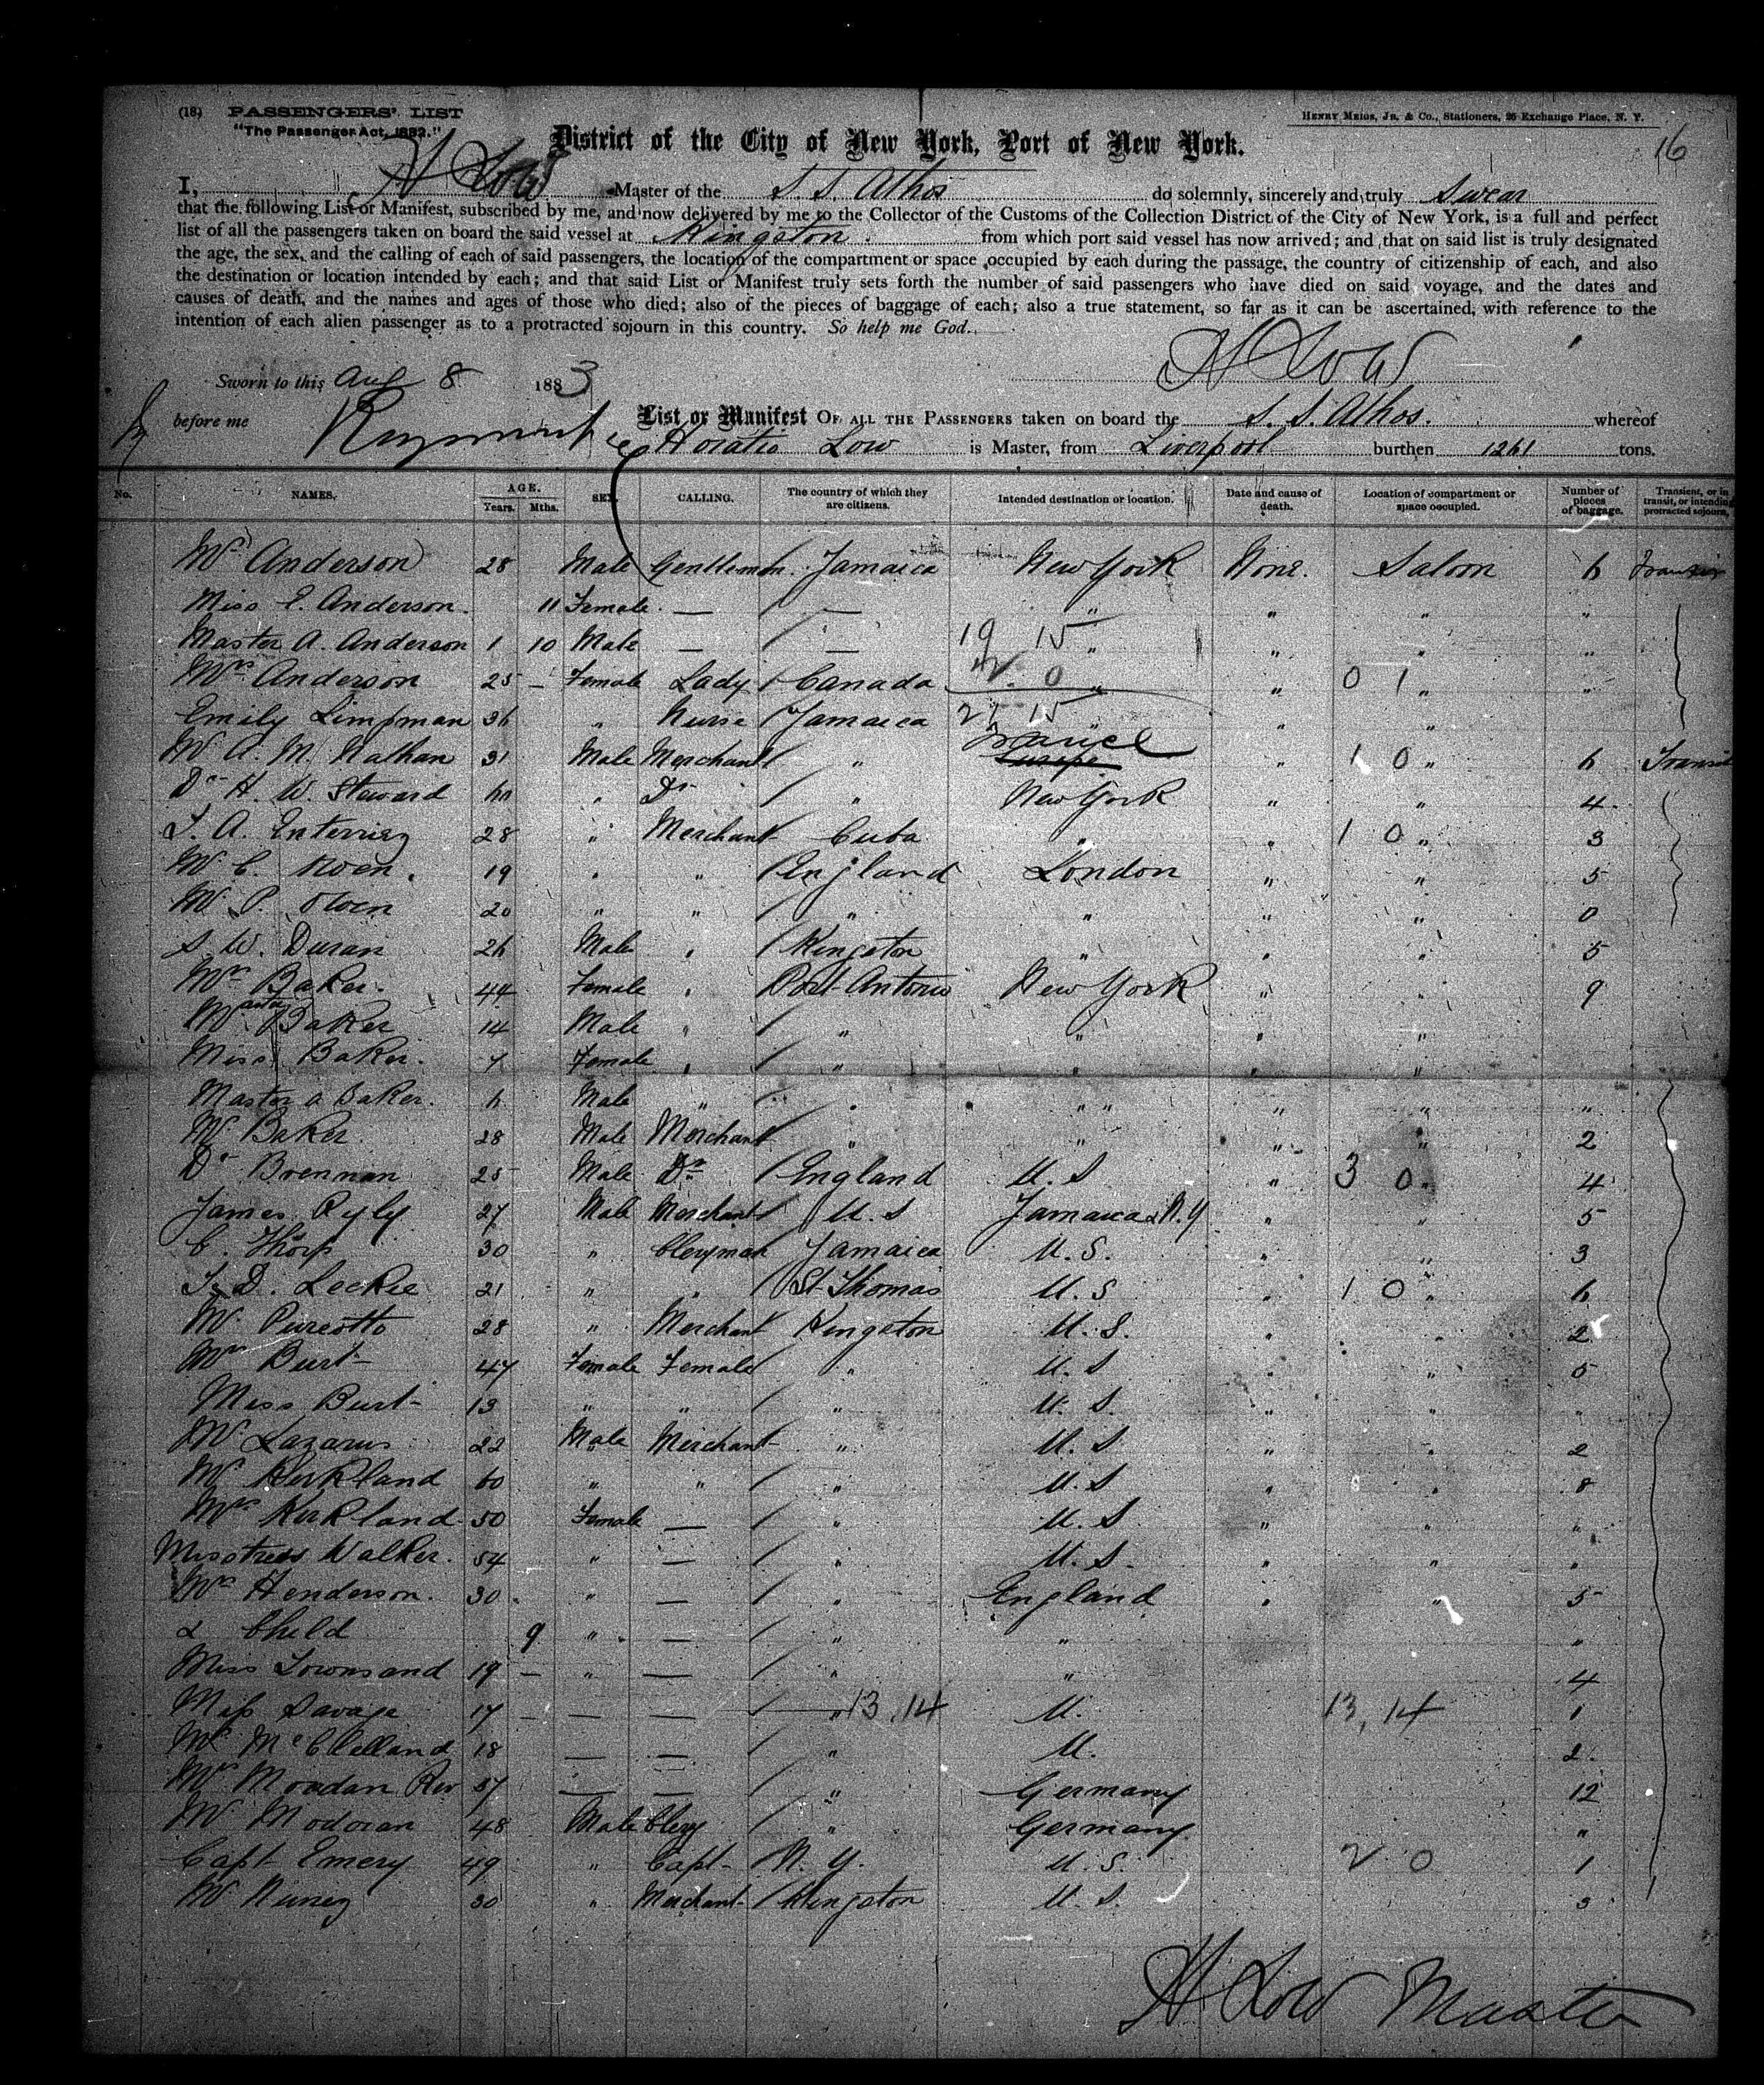 (18) PASSENGERS' LIST
"The Passenger Act, 1882."
HENRY MEIGS, JR. & CO., Stationers, 26 Exchange Place, N. Y.
16
District of the City of New York, Port of New York.
I, H Low Master of the S. S. Athos do solemnly, sincerely and truly Swear
that the following List or Manifest, subscribed by me, and now delivered by me to the Collector of the Customs of the Collection District of the City of New York, is a full and perfect
list of all the passengers taken on board the said vessel at Kingston from which port said vessel has now arrived; and that on said list is truly designated
the age, the sex, and the calling of each of said passengers, the location of the compartment or space occupied by each during the passage, the country of citizenship of each, and also
the destination or location intended by each; and that said List or Manifest truly sets forth the number of said passengers who have died on said voyage, and the dates and
causes of death, and the names and ages of those who died; also of the pieces of baggage of each; also a true statement, so far as it can be ascertained, with reference to the
intention of each alien passenger as to a protracted sojourn in this country. So help me God.
H Low
Sworn to this Aug 8 1883
before me
List or Manifest OF ALL THE PASSENGERS taken on board the S. S. Athos. whereof
Horatio Low is Master, from Liverpool burthen 1261 tons.
No. NAMES. AGE. Years. Mths. SEX. CALLING. The country of which they are citizens. Intended destination or location. Date and cause of death. Location of compartment or space occupied. Number of pieces of baggage. Transient, or in transit, or intending protracted sojourn.
Mr Anderson 28 Male Gentleman Jamaica New York None. Saloon 6 Transit
Miss E. Anderson. 11 Female — — " " " "
Master A. Anderson 1 10 Male — — 19 15 " " " "
Mrs Anderson 25 — Female Lady Canada 0 " " 0 1 " "
Emily Limpman 36 " Nurse Jamaica 27 15 " " "
W. A. M. Nathan 31 Male Merchant " Europe 1 0 " 6 Transit
Dr H. W. Steward 60 " Dr " New York " " 4
28 " Merchant Cuba " " 1 0 " 3
W C. 19 " " England London " " 5
W P. 20 " " " " " " 0
S. W. Duran 26 Male " Kingston " " " 5
Mrs Baker. 44 Female " Port Antonio New York " " 9
Master Baker 14 Male " " " " "
Miss Baker. 7 Female " " " " "
Master A Baker. 6 Male " " " " " " "
Mr Baker. 28 Male Merchant " " " " 2
Dr Brennan 25 Male Dr England U. S " 3 0 " 4
James Ryly 27 Male Merchant U. S Jamaica N. Y " " 5
C. Thorp 30 " Cleryman Jamaica U. S. " " 3
D. Leckie 21 " " St Thomas U. S " 1 0 " 6
Mr 28 " Merchant Kingston U. S. " " 2
Mrs Burt 47 Female Female " U. S " " 5
Miss Burt 13 " " " U. S. " " "
Mr Lazarus 22 Male Merchant " U. S " " 2
Mr Kirkland 60 " " " U. S " " 8
Mrs Kirkland 50 Female — " U. S " " "
Misstress Walker. 54 " — " U. S. " " "
Mrs Henderson. 30. " — " England " " 5
& Child 9 " — " " "
Miss Townsand 19 — " — " " 4
Miss Savage 17 — — — " 13,14 U. 13,14 1
Mr McClelland 18 — — " U. 2.
Mrs Rev 57 — — " Germany 12
Mr 48 Male Clery " Germany "
Capt Emery 49 " Capt N. Y. U. S. 2 0 1
Mr Nunez 30 " Merchant Kingston U. S. 3
H Low Master